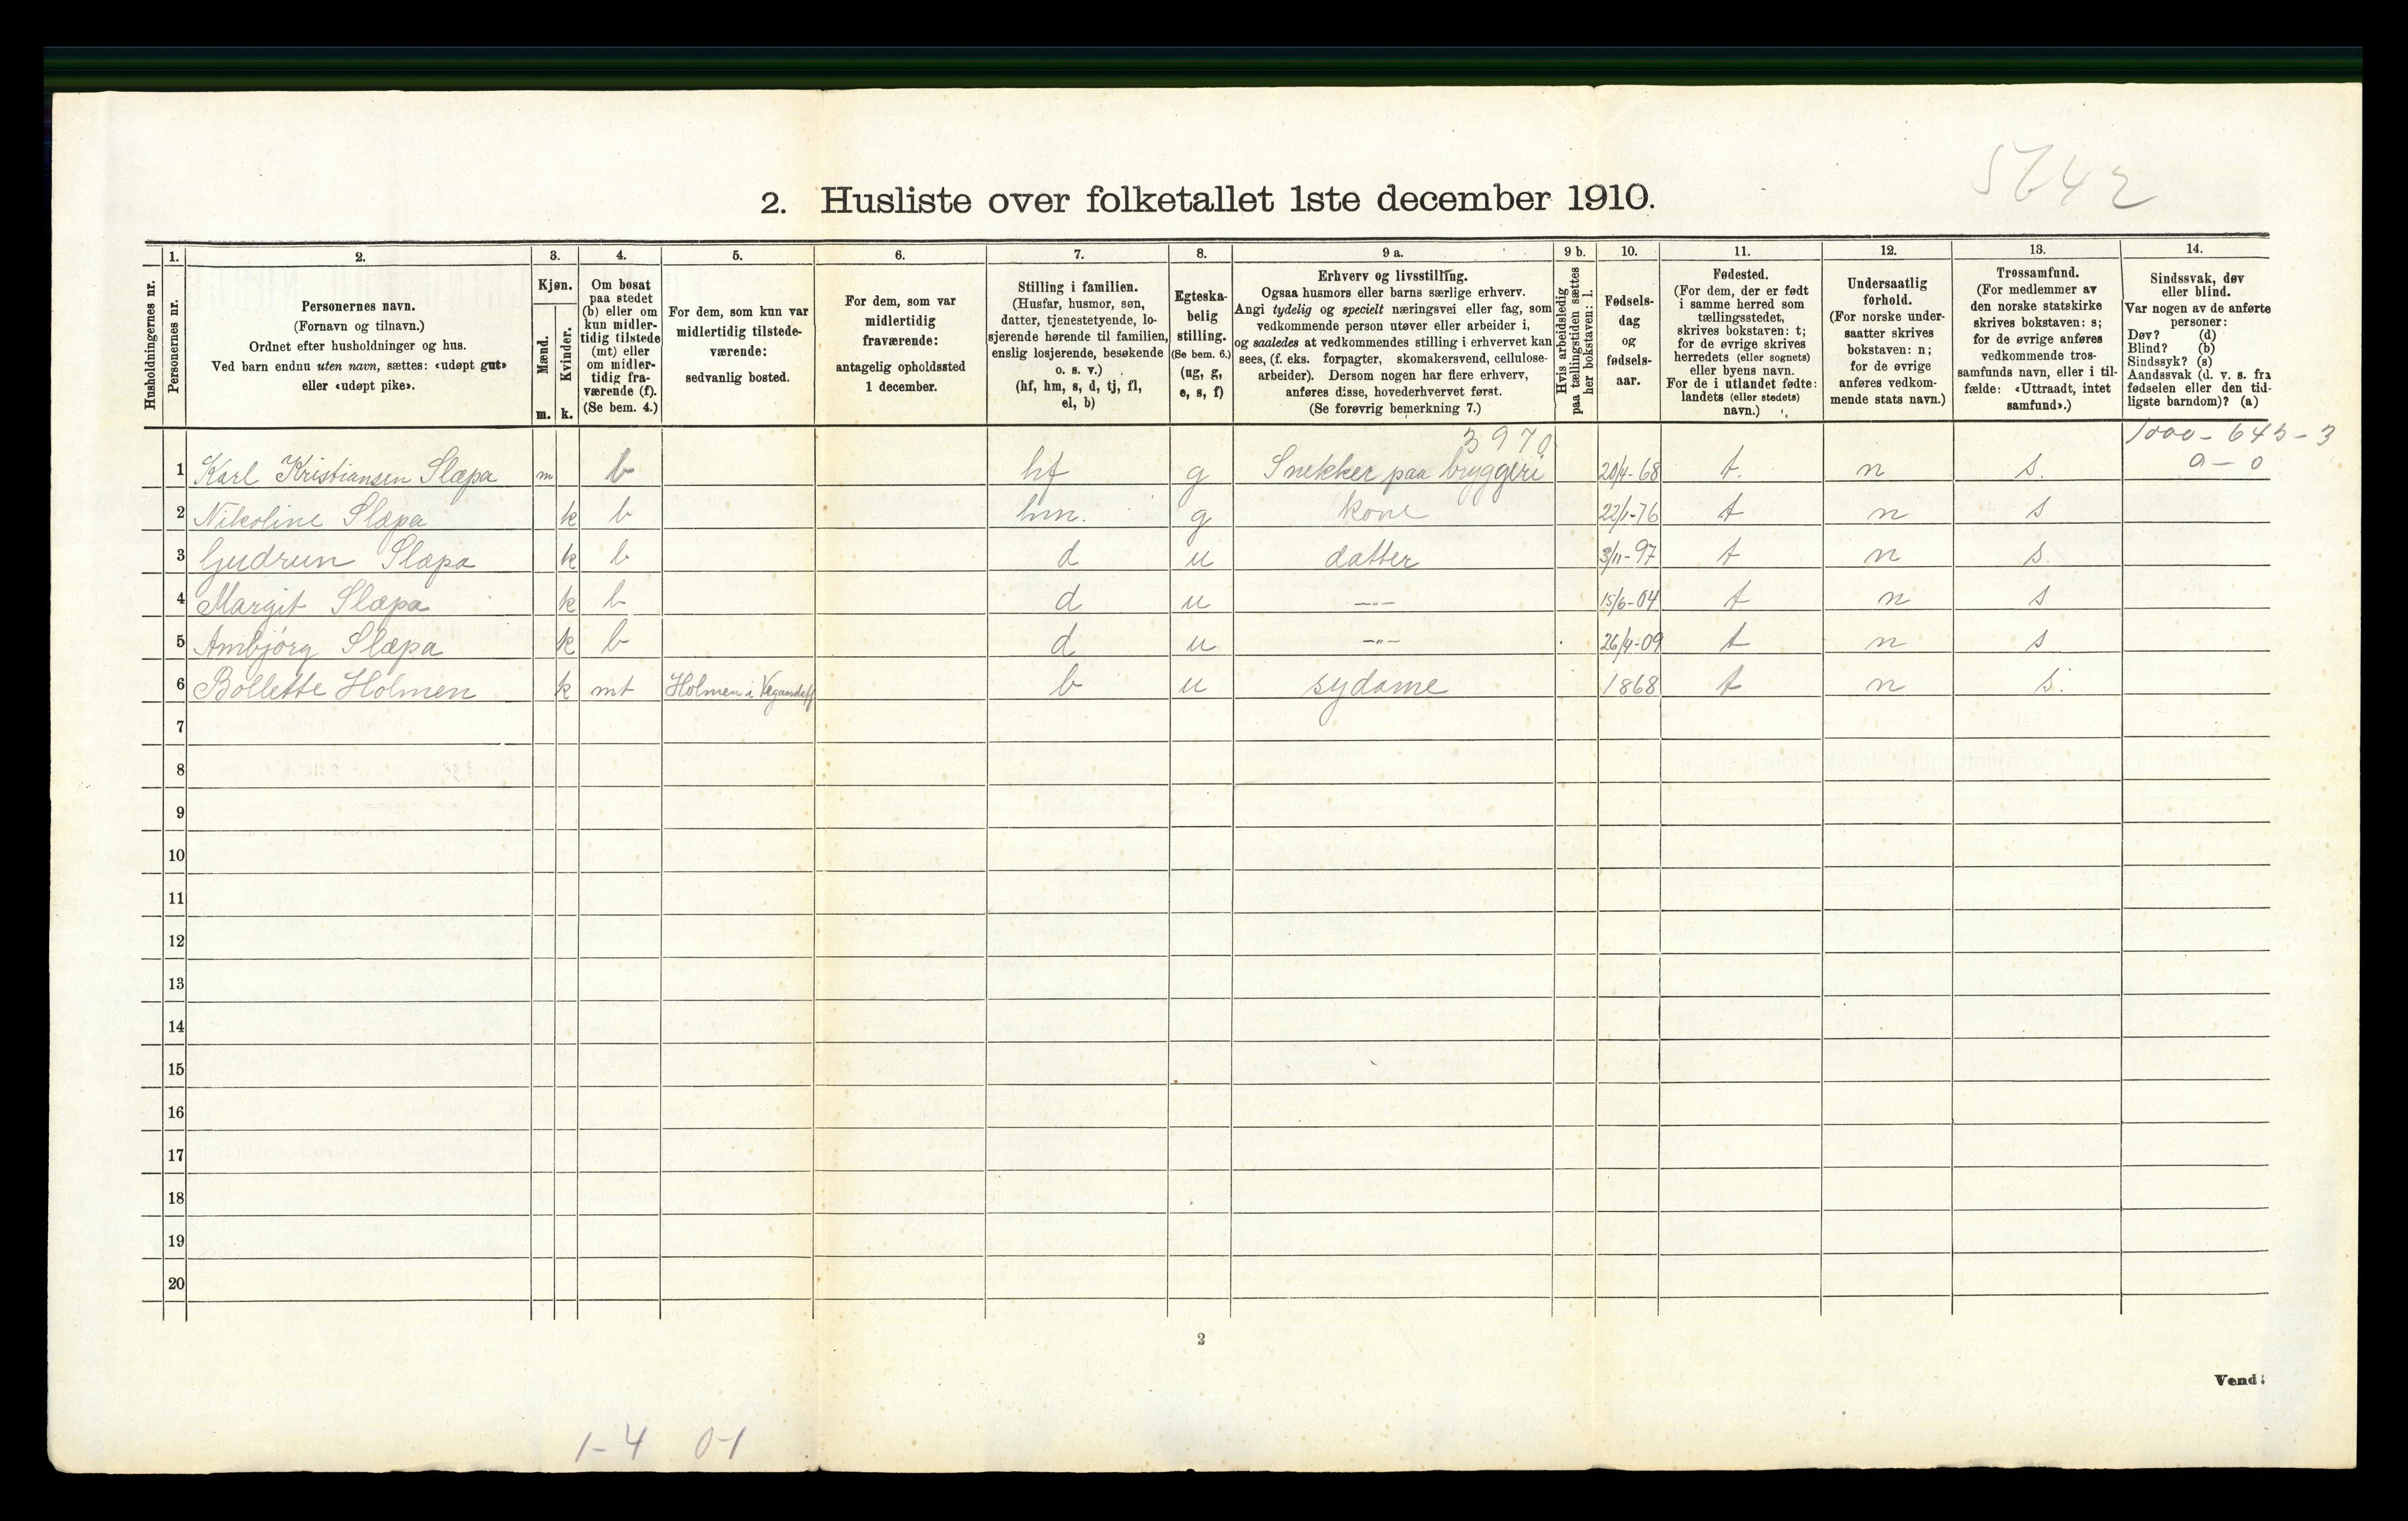 5642
2. Husliste over folketallet 1ste december 1910.
1. 2. 3. 4. 5. 6. 7. 8. 9 a. 9 b. 10. 11. 12. 13. 14.
Husholdningernes nr.
Personernes nr.
Personernes navn.
(Fornavn og tilnavn.)
Ordnet efter husholdninger og hus.
Ved barn endnu uten navn, sættes: «udøpt gut»
eller «udøpt pike».
Kjøn.
Mænd.
m.
Kvinder.
k.
Om bosat
paa stedet
(b) eller om
kun midler-
tidig tilstede
(mt) eller
om midler-
tidig fra-
værende (f).
(Se bem. 4.)
For dem, som kun var
midlertidig tilstede-
værende:
sedvanlig bosted.
For dem, som var
midlertidig
fraværende:
antagelig opholdssted
1 december.
Stilling i familien.
(Husfar, husmor, søn,
datter, tjenestetyende, lo-
sjerende hørende til familien,
enslig losjerende, besøkende
o. s. v.)
(hf, hm, s, d, tj, fl,
el, b)
Egteska-
belig
stilling.
(Se bem. 6.)
(ug, g,
e, s, f)
Erhverv og livsstilling.
Ogsaa husmors eller barns særlige erhverv.
Angi tydelig og specielt næringsvei eller fag, som
vedkommende person utøver eller arbeider i,
og saaledes at vedkommendes stilling i erhvervet kan
sees, (f. eks. forpagter, skomakersvend, cellulose-
arbeider). Dersom nogen har flere erhverv,
anføres disse, hovederhvervet først.
(Se forøvrig bemerkning 7.)
Hvis arbeidsledig
paa tællingstiden sættes
her bokstaven: l.
Fødsels-
dag
og
fødsels-
aar.
Fødested.
(For dem, der er født
i samme herred som
tællingsstedet,
skrives bokstaven: t;
for de øvrige skrives
herredets (eller sognets)
eller byens navn.
For de i utlandet fødte:
landets (eller stedets)
navn.)
Undersaatlig
forhold.
(For norske under-
saatter skrives
bokstaven: n;
for de øvrige
anføres vedkom-
mende stats navn.)
Trossamfund.
(For medlemmer av
den norske statskirke
skrives bokstaven: s;
for de øvrige anføres
vedkommende tros-
samfunds navn, eller i til-
fælde: «Uttraadt, intet
samfund».)
Sindssvak, døv
eller blind.
Var nogen av de anførte
personer:
Døv? (d)
Blind? (b)
Sindssyk? (s)
Aandssvak (d. v. s. fra
fødselen eller den tid-
ligste barndom)? (a)
3970 1000 - 645 - 3
1 Karl Kristiansen Slæpa m b hf g Snekker paa bryggeri 20/4-68 t. n s. 0 - 0
2 Nikoline Slæpa k b hm. g kone 22/1-76 t n s
3 Gudrun Slæpa k b d u datter 3/11-97 t n s.
4 Margit Slæpa k b d u -"- 15/6-04 t n s
5 Ambjörg Slæpa k b d u -"- 26/4-09 t n s
6 Bollette Holmen k mt Holmen i b u sydame 1868 t n s.
7
8
9
10
11
12
13
14
15
16
17
18
19
20
2
Vend!
1-4 0-1